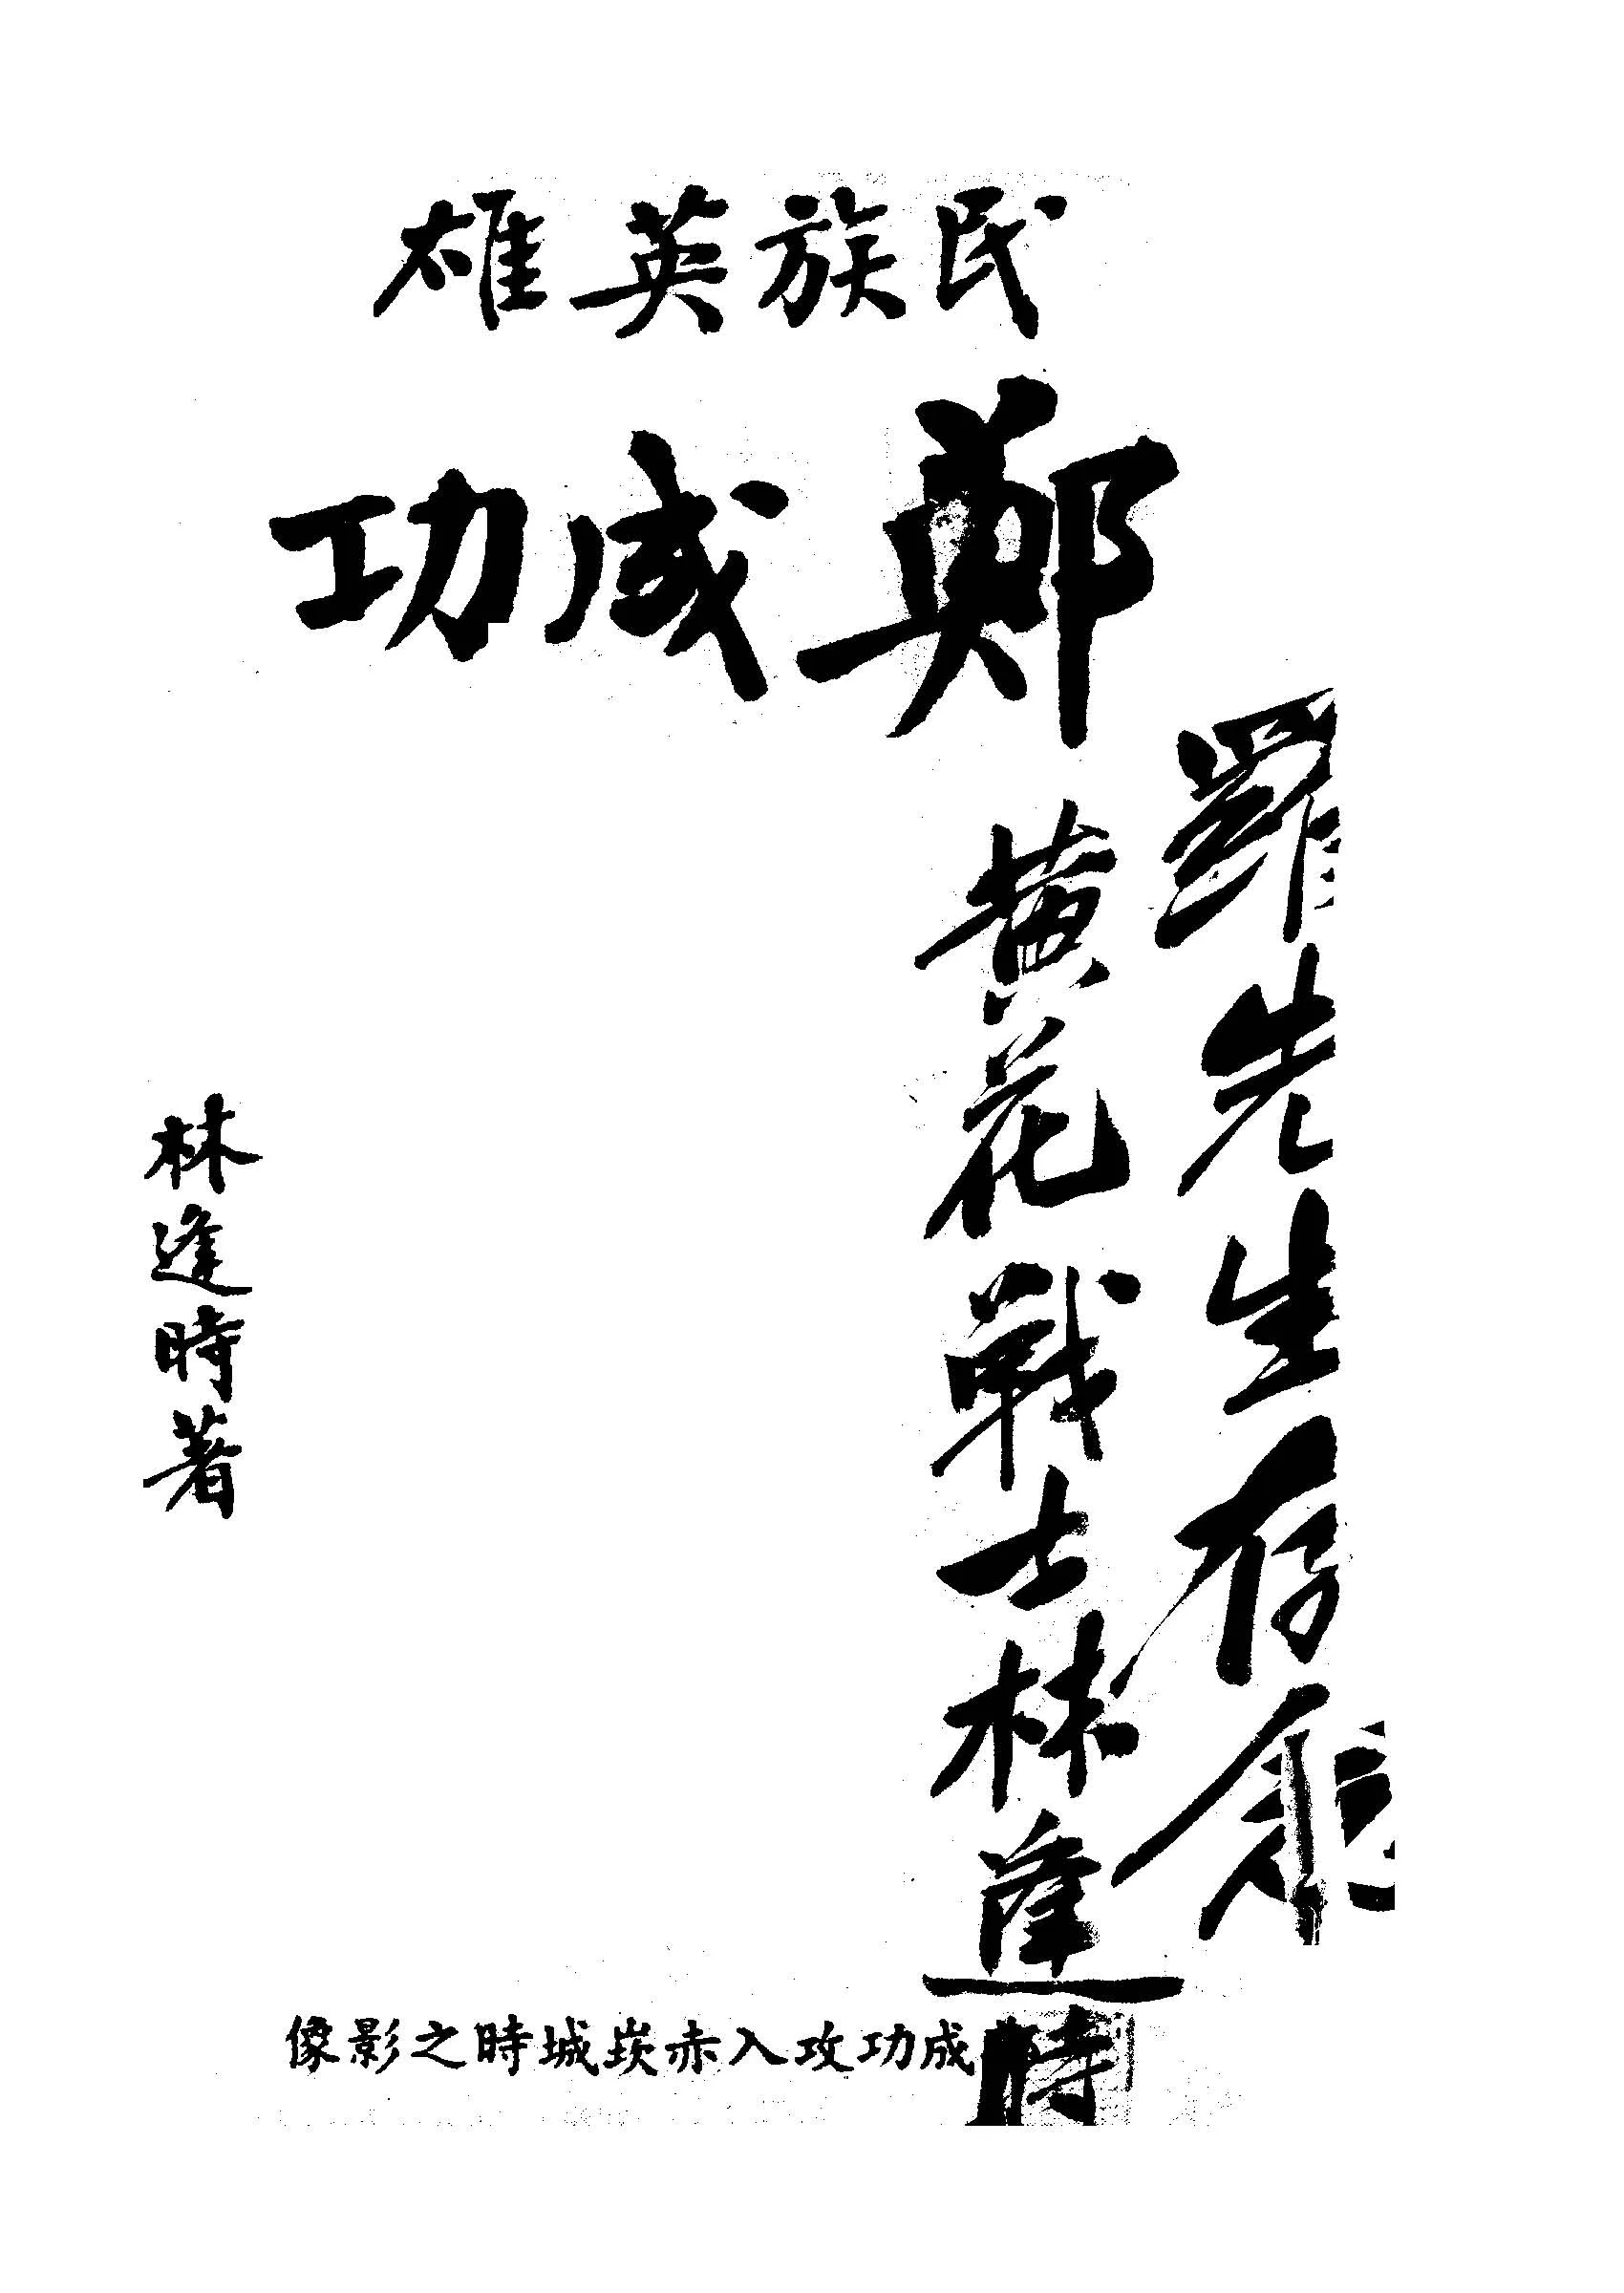 民族英雄
鄭成功
羅先生存念
黄花戰士林逢時
林逢時著
成功攻入赤崁城時之影像